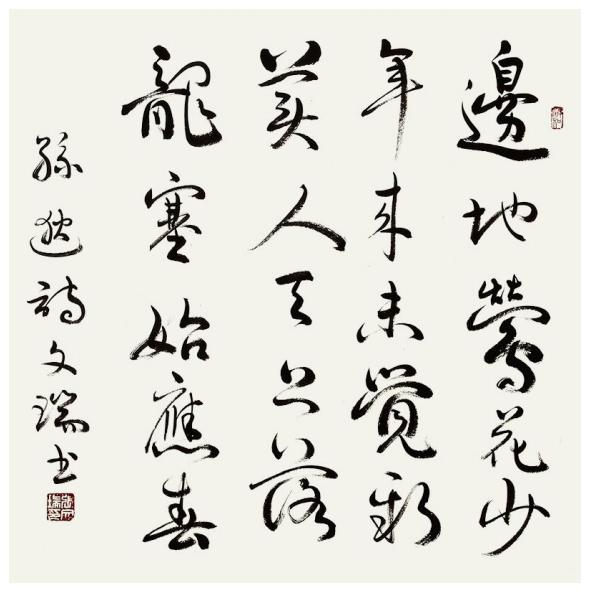 邊地鶯花少
年来未覺新
美人天上落
龍塞始應春
孫逖詩文瑞书